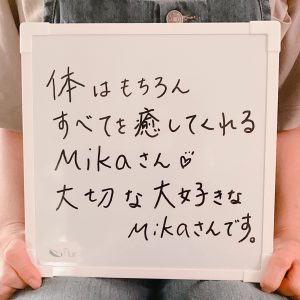 体はもちろん
すべてを癒してくれる
Mikaさん♡
大切な大好きな
Mikaさんです。